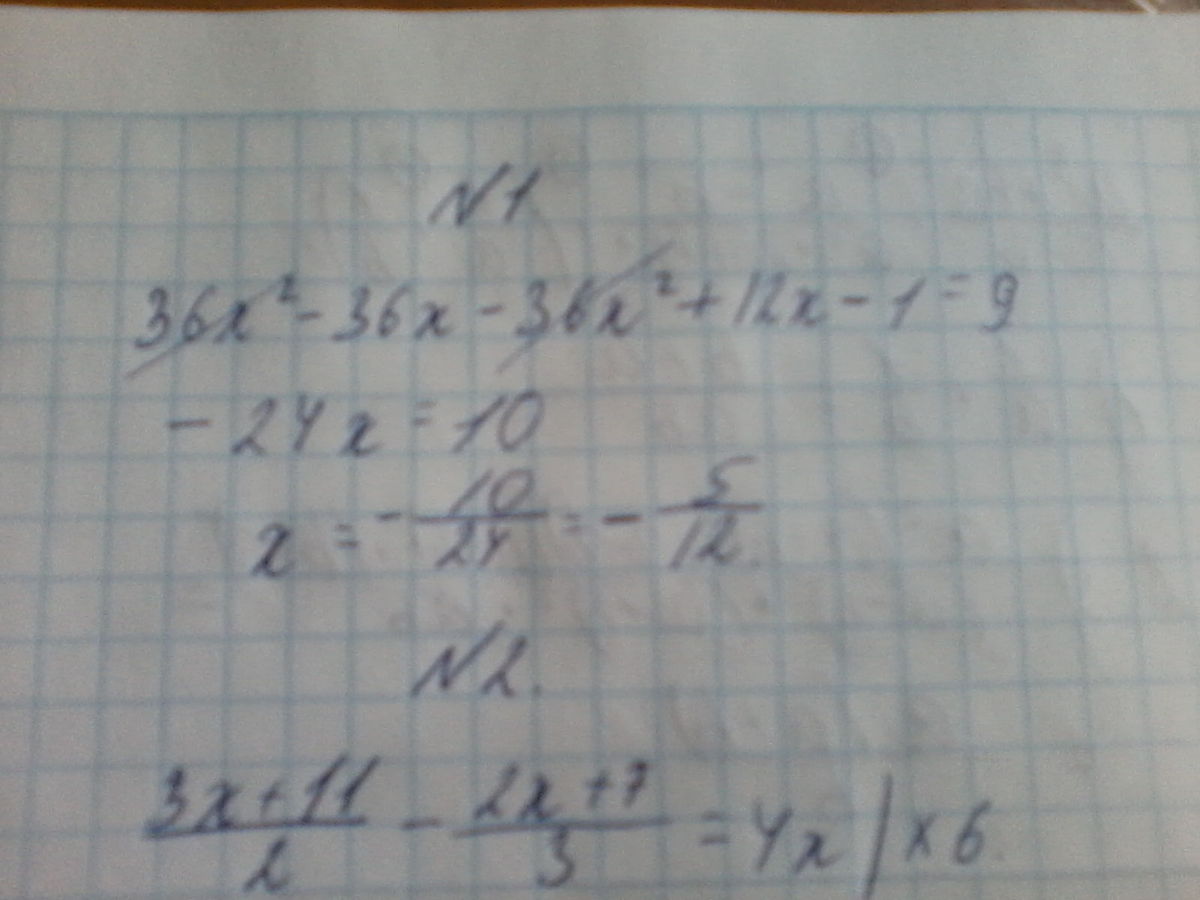 N1
36x² - 36x - 36x² + 12x - 1 = 9
- 24x = 10
x = - 10/24 = - 5/12.
N2.
3x+11/2 - 2x+7/3 = 4x | × 6